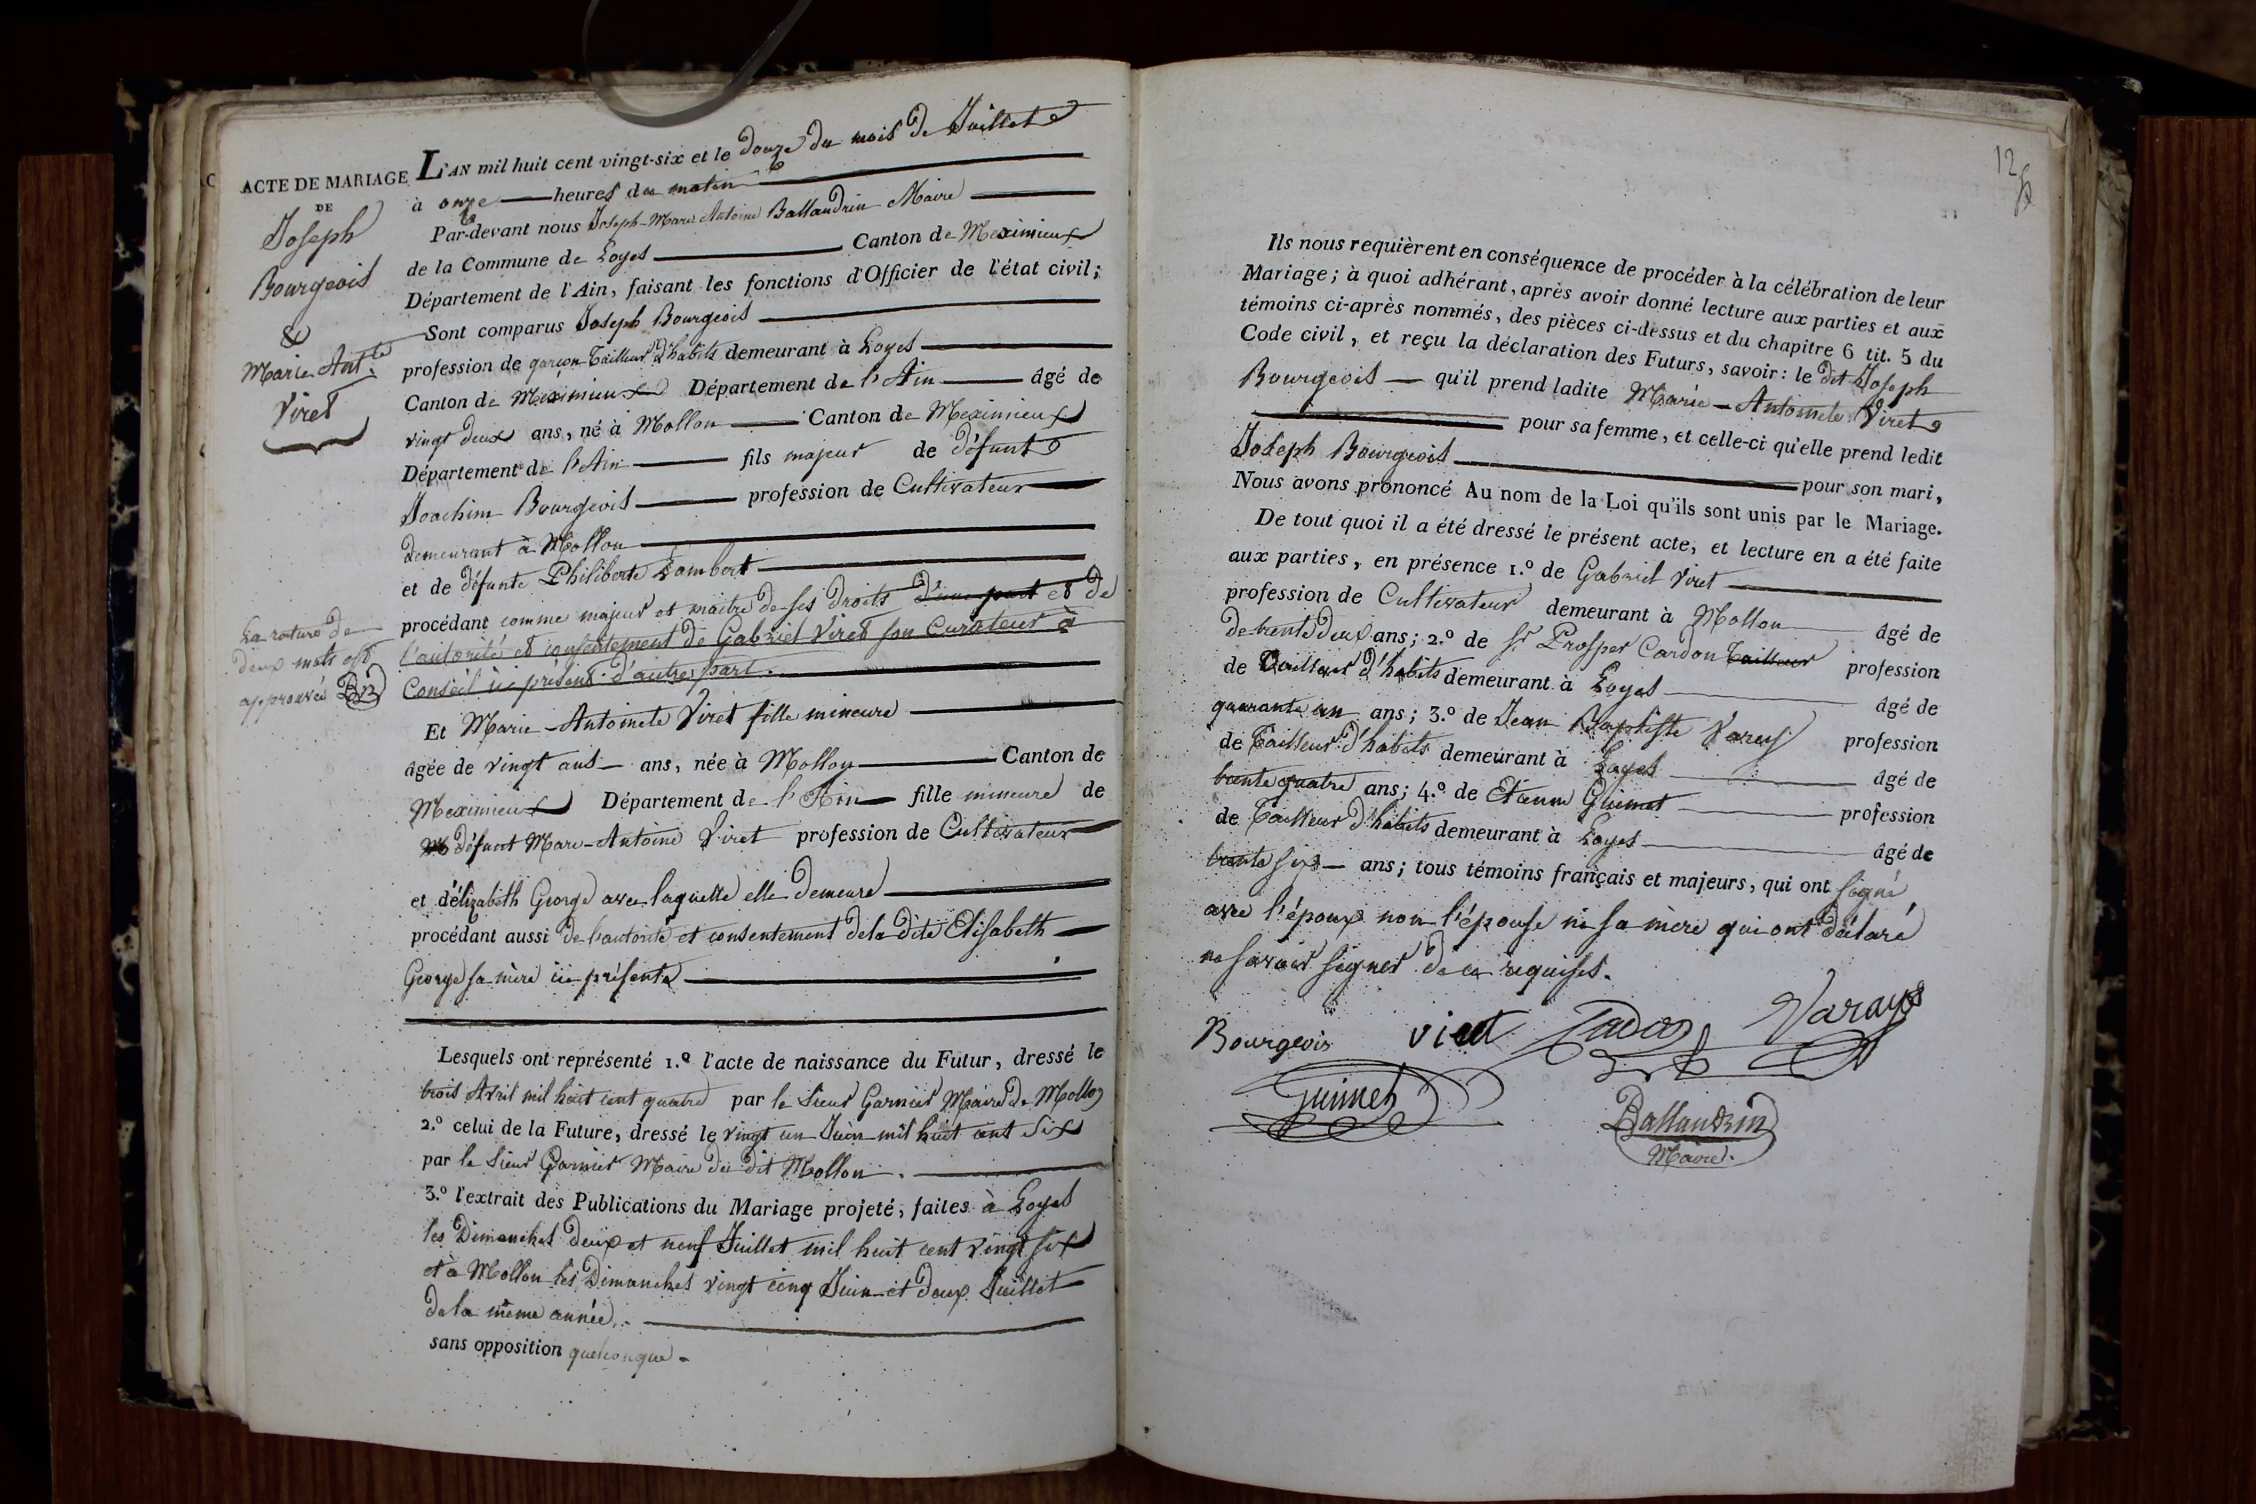 ACTE DE MARIAGE
DE
Joseph
Bourgeois
&
Marie Ant.te
Viret
L'AN mil huit cent vingt-six et le douze du mois de Juillet
à onze heures du matin
Par-devant nous Joseph-Marie Antoine Ballandrin Maire
de la Commune de Loyes Canton de Meximieux
Département de l'Ain, faisant les fonctions d'Officier de l'état civil;
Sont comparus Joseph Bourgeois
profession de garçon Tailleur d'habits demeurant à Loyes
Canton de Meximieux Département de l'Ain âgé de
vingt deux ans, né à Mollon Canton de Meximieux
Département de l'Ain fils majeur de défunt
Joachim Bourgeois profession de Cultivateur
demeurant à Mollon
et de défunte Philiberte Lambert
procédant comme majeur et maitre de ses droits d'une part et de
l'autorité et consentement de Gabriel Viret son Curateur à
Conseil ici présent d'autre part.
La rature de
deux mots est
approuvée
Et Marie-Antoinete Viret fille mineure
âgée de vingt ans ans, née à Mollon Canton de
Meximieux Département de l'Ain fille mineure de
défunt Marc-Antoine Viret profession de Cultivateur
et d'élizabeth George avec laquelle elle demeure
procédant aussi de l'autorité et consentement de la dite Elisabeth
George sa mère ici présente
Lesquels ont représenté 1.º l'acte de naissance du Futur, dressé le
trois Avril mil huit cent quatre par le Sieur Garnier Maire de Mollon
2.º celui de la Future, dressé le vingt un Juin mil huit cent six
par le Sieur Garnier Maire du dit Mollon.
3.º l'extrait des Publications du Mariage projeté, faites à Loyes
les Dimanches deux et neuf Juillet mil huit cent vingt six
et à Mollon les Dimanches vingt cinq Juin et deux Juillet
de la même année.
sans opposition quelconque
12
Ils nous requièrent en conséquence de procéder à la célébration de leur
Mariage; à quoi adhérant, après avoir donné lecture aux parties et aux
témoins ci-après nommés, des pièces ci-dessus et du chapitre 6 tit. 5 du
Code civil, et reçu la déclaration des Futurs, savoir: le dit Joseph
Bourgeois qu'il prend ladite Marie-Antoinete Viret
pour sa femme, et celle-ci qu'elle prend ledit
Joseph Bourgeois pour son mari,
Nous avons prononcé Au nom de la Loi qu'ils sont unis par le Mariage.
De tout quoi il a été dressé le présent acte, et lecture en a été faite
aux parties, en présence 1.º de Gabriel Viret
profession de Cultivateur demeurant à Mollon âgé de
de trente deux ans; 2.º de Sr Prosper Cardon Tailleur profession
de Tailleur d'habits demeurant à Loyes âgé de
quarante un ans; 3.º de Jean Baptiste Varey profession
de Tailleur d'habits demeurant à Loyes âgé de
trente quatre ans; 4.º de Etienne Guimet profession
de Tailleur d'habits demeurant à Loyes âgé de
trente six ans; tous témoins français et majeurs, qui ont signé
avec l'époux non l'épouse ni sa mère qui ont déclaré
ne savoir signer de ce requises.
Bourgeois viret Cardon Varay
Guimet
Ballandrin
Maire.